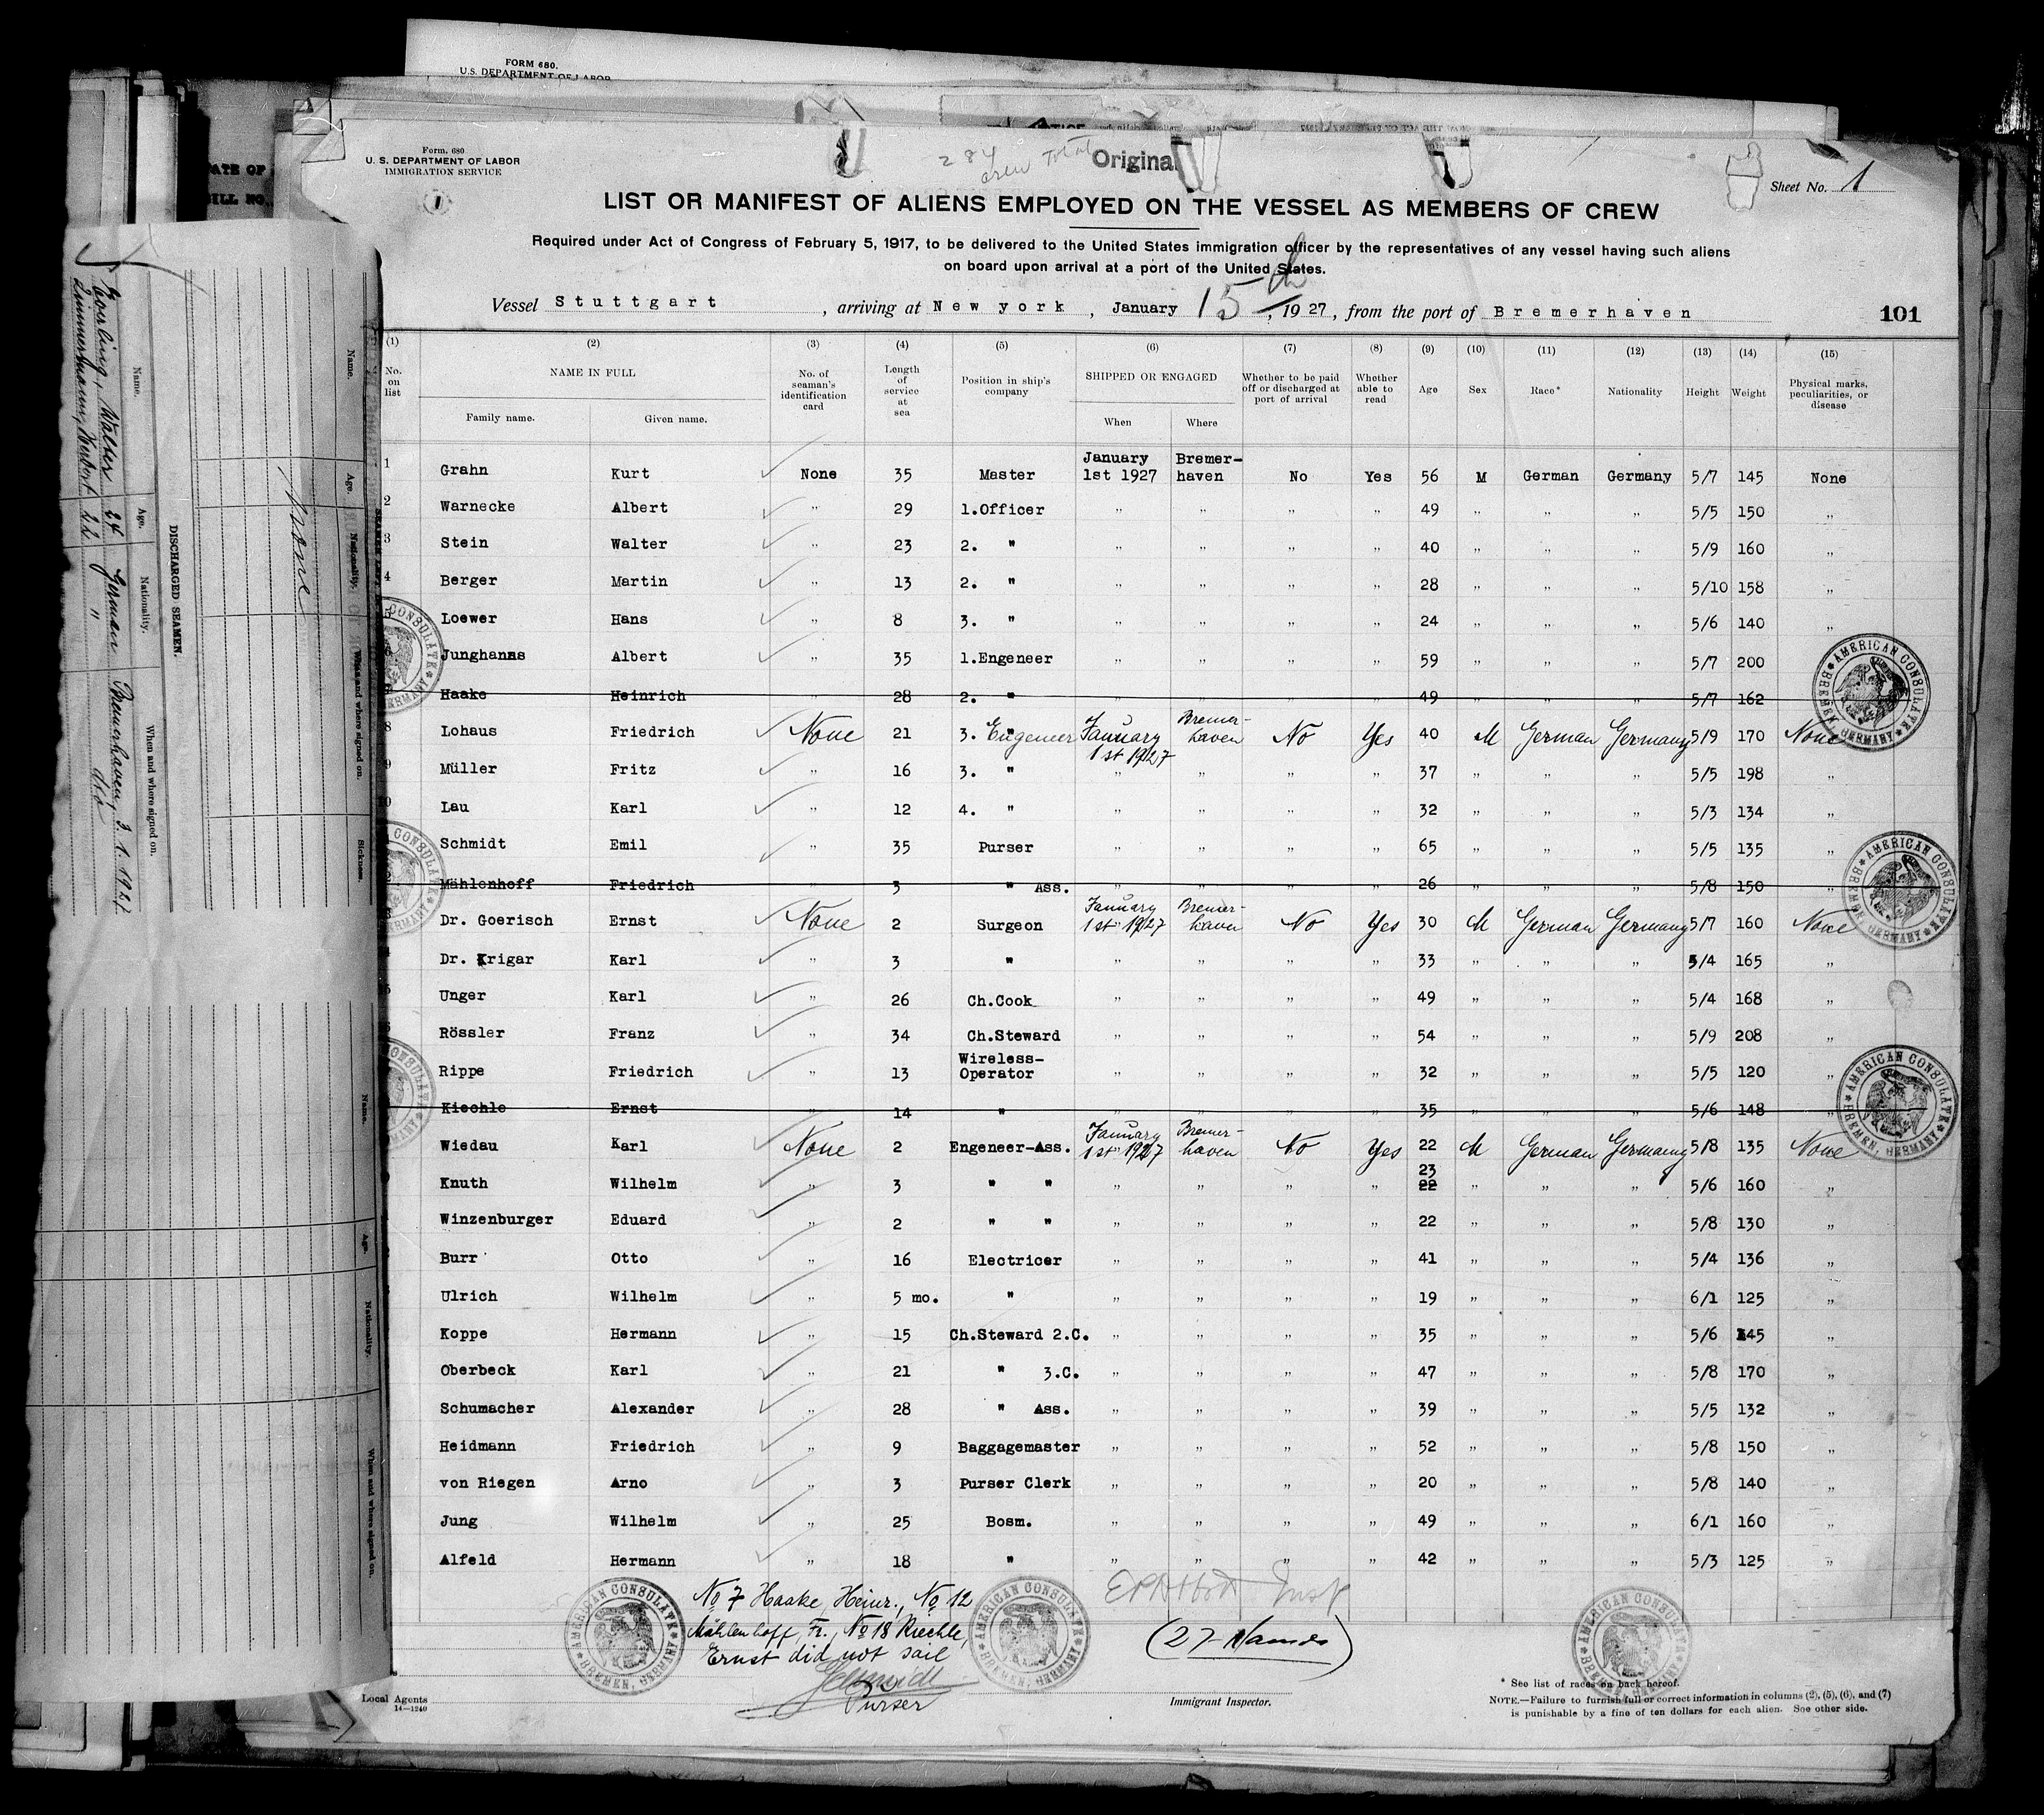 FORM 680.
U.S. DEPARTMENT OF LABOR
Form. 680
U. S. DEPARTMENT OF LABOR
IMMIGRATION SERVICE
284
crew Total
Original
Sheet No. 1
1
LIST OR MANIFEST OF ALIENS EMPLOYED ON THE VESSEL AS MEMBERS OF CREW
Required under Act of Congress of February 5, 1917, to be delivered to the United States immigration officer by the representatives of any vessel having such aliens
on board upon arrival at a port of the United States.
Vessel Stuttgart, arriving at New york, January 15th, 1927, from the port of Bremerhaven 101
(1) (2) (3) (4) (5) (6) (7) (8) (9) (10) (11) (12) (13) (14) (15)
No. on list NAME IN FULL Family name. Given name. No. of seaman's identification card Length of service at sea Position in ship's company SHIPPED OR ENGAGED When Where Whether to be paid off or discharged at port of arrival Whether able to read Age Sex Race* Nationality Height Weight Physical marks, peculiarities, or disease
1 Grahn Kurt None 35 Master January 1st 1927 Bremer-haven No Yes 56 M German Germany 5/7 145 None
2 Warnecke Albert " 29 1.Officer " " " " 49 " " " 5/5 150 "
3 Stein Walter " 23 2. " " " " " 40 " " " 5/9 160 "
4 Berger Martin " 13 2. " " " " " 28 " " " 5/10 158 "
5 Loewer Hans " 8 3. " " " " " 24 " " " 5/6 140 "
6 Junghanns Albert " 35 1.Engeneer " " " " 59 " " " 5/7 200 "
Haake Heinrich " 28 2. " " " " " 49 " " " 5/7 162 "
8 Lohaus Friedrich None 21 3. Engeneer January 1st 1927 Bremer-haven No Yes 40 M German Germany 5/9 170 None
9 Müller Fritz " 16 3. " " " " " 37 " " " 5/5 198 "
10 Lau Karl " 12 4. " " " " " 32 " " " 5/3 134 "
Schmidt Emil " 35 Purser " " " " 65 " " " 5/5 135 "
Mählenhoff Friedrich " 3 " Ass. " " " " 26 " " " 5/8 150 "
Dr. Goerisch Ernst None 2 Surgeon January 1st 1927 Bremer-haven No Yes 30 M German Germany 5/7 160 None
Dr. Krigar Karl " 3 " " " " " 33 " " " 5/4 165 "
Unger Karl " 26 Ch.Cook " " " " 49 " " " 5/4 168 "
Rössler Franz " 34 Ch.Steward " " " " 54 " " " 5/9 208 "
Rippe Friedrich " 13 Wireless-Operator " " " " 32 " " " 5/5 120 "
Kiechle Ernst " 14 " " " " " 35 " " " 5/6 148 "
Wiedau Karl None 2 Engeneer-Ass. January 1st 1927 Bremer-haven No Yes 22 M German Germany 5/8 135 None
Knuth Wilhelm " 3 " " " " " " 23 22 " " " 5/6 160 "
Winzenburger Eduard " 2 " " " " " " 22 " " " 5/8 130 "
Burr Otto " 16 Electricer " " " " 41 " " " 5/4 136 "
Ulrich Wilhelm " 5 mo. " " " " " 19 " " " 6/1 125 "
Koppe Hermann " 15 Ch.Steward 2.C. " " " " 35 " " " 5/6 145 "
Oberbeck Karl " 21 " 3.C. " " " " 47 " " " 5/8 170 "
Schumacher Alexander " 28 " Ass. " " " " 39 " " " 5/5 132 "
Heidmann Friedrich " 9 Baggagemaster " " " " 52 " " " 5/8 150 "
von Riegen Arno " 3 Purser Clerk " " " " 20 " " " 5/8 140 "
Jung Wilhelm " 25 Bosm. " " " " 49 " " " 6/1 160 "
Alfeld Hermann " 18 " " " " " 42 " " " 5/3 125 "
No 7 Haake, Heinr., No 12
Mählenhoff, Fr., No 18 Kiechle,
Ernst did not sail
Schmidt
Purser
(27 Names)
Insp
Immigrant Inspector.
Local Agents
14—1240
* See list of races on back hereof.
NOTE.—Failure to furnish full or correct information in columns (2), (5), (6), and (7)
is punishable by a fine of ten dollars for each alien. See other side.
AMERICAN CONSULATE
BREMEN, GERMANY
AMERICAN CONSULATE
BREMEN, GERMANY
AMERICAN CONSULATE
BREMEN, GERMANY
AMERICAN CONSULATE
BREMEN, GERMANY
AMERICAN CONSULATE
BREMEN, GERMANY
AMERICAN CONSULATE
BREMEN, GERMANY
DISCHARGED SEAMEN.
Name. Age. Nationality. When and where signed on.
Walter 24 German Bremerhaven, 3.1.1927
Zimmermann, Herbert 22 " dto
Name. Age. Nationality. When and where signed on. Sickness.
None
Name. Age. Nationality. When and where signed on.